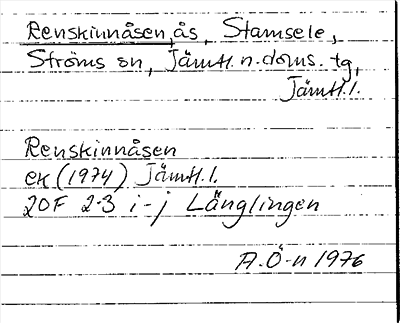 Renskinnåsen, ås, Stamsele,
Ströms sn, Jämtl. n. doms. tg,
Jämtl. l.
Renskinnåsen
ek (1974) Jämtl. l.
20F 2-3 i-j Länglingen
A.Ö-n 1976